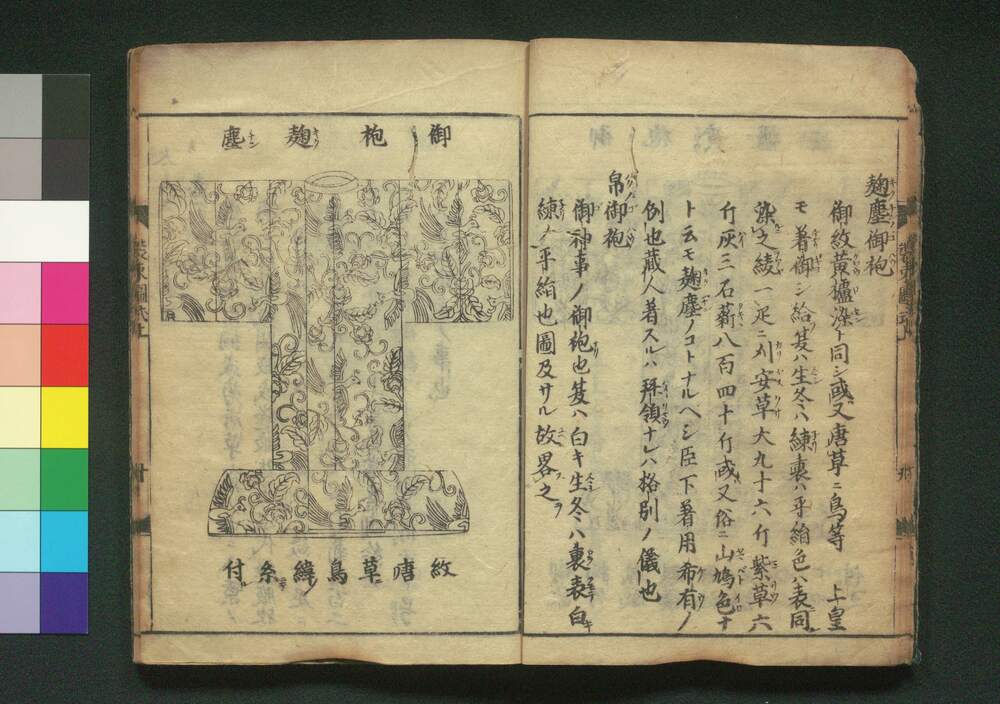 麹塵御袍
御紋黄櫨染ト同シ或又唐草ニ鳥等 上皇
モ著御シ給夏ハ生冬ハ練裏ハ平絹色ハ表同
染之綾一疋ニ刈安草大九十六斤紫草六
斤灰三石薪八百四十斤或又俗ニ山鳩色ナ
ト云モ麹塵ノコトナルヘシ臣下著用布有ノ
例也蔵人着スルハ拝領ナレハ格別ノ儀也
帛御袍
御神事ノ御袍也夏ハ白キ生冬ハ裏表白
練ノ平絹也圖及サル故畧之
御袍麹塵
紋唐草鳥緯糸付